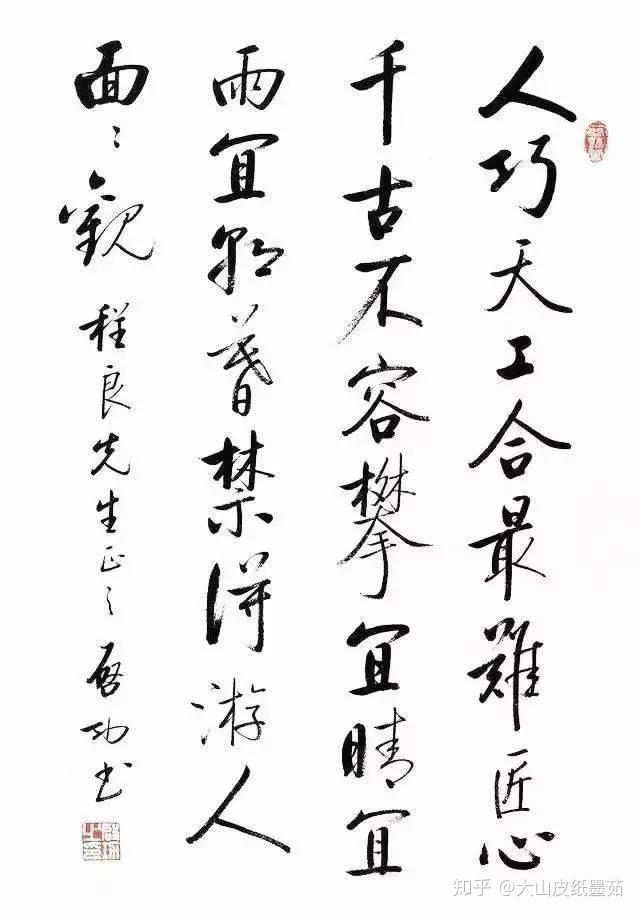 人巧天工合最難匠心
千古不容攀宜晴宜
雨宜朝暮禁得游人
面〻觀 程良先生正之 啓功書
知乎 @大山皮纸墨茹